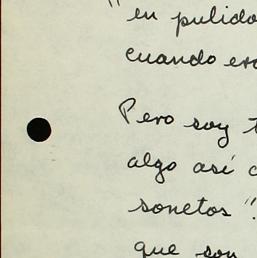 "en pulido
cuando era
Pero soy t
algo así c
sonetos".
que son